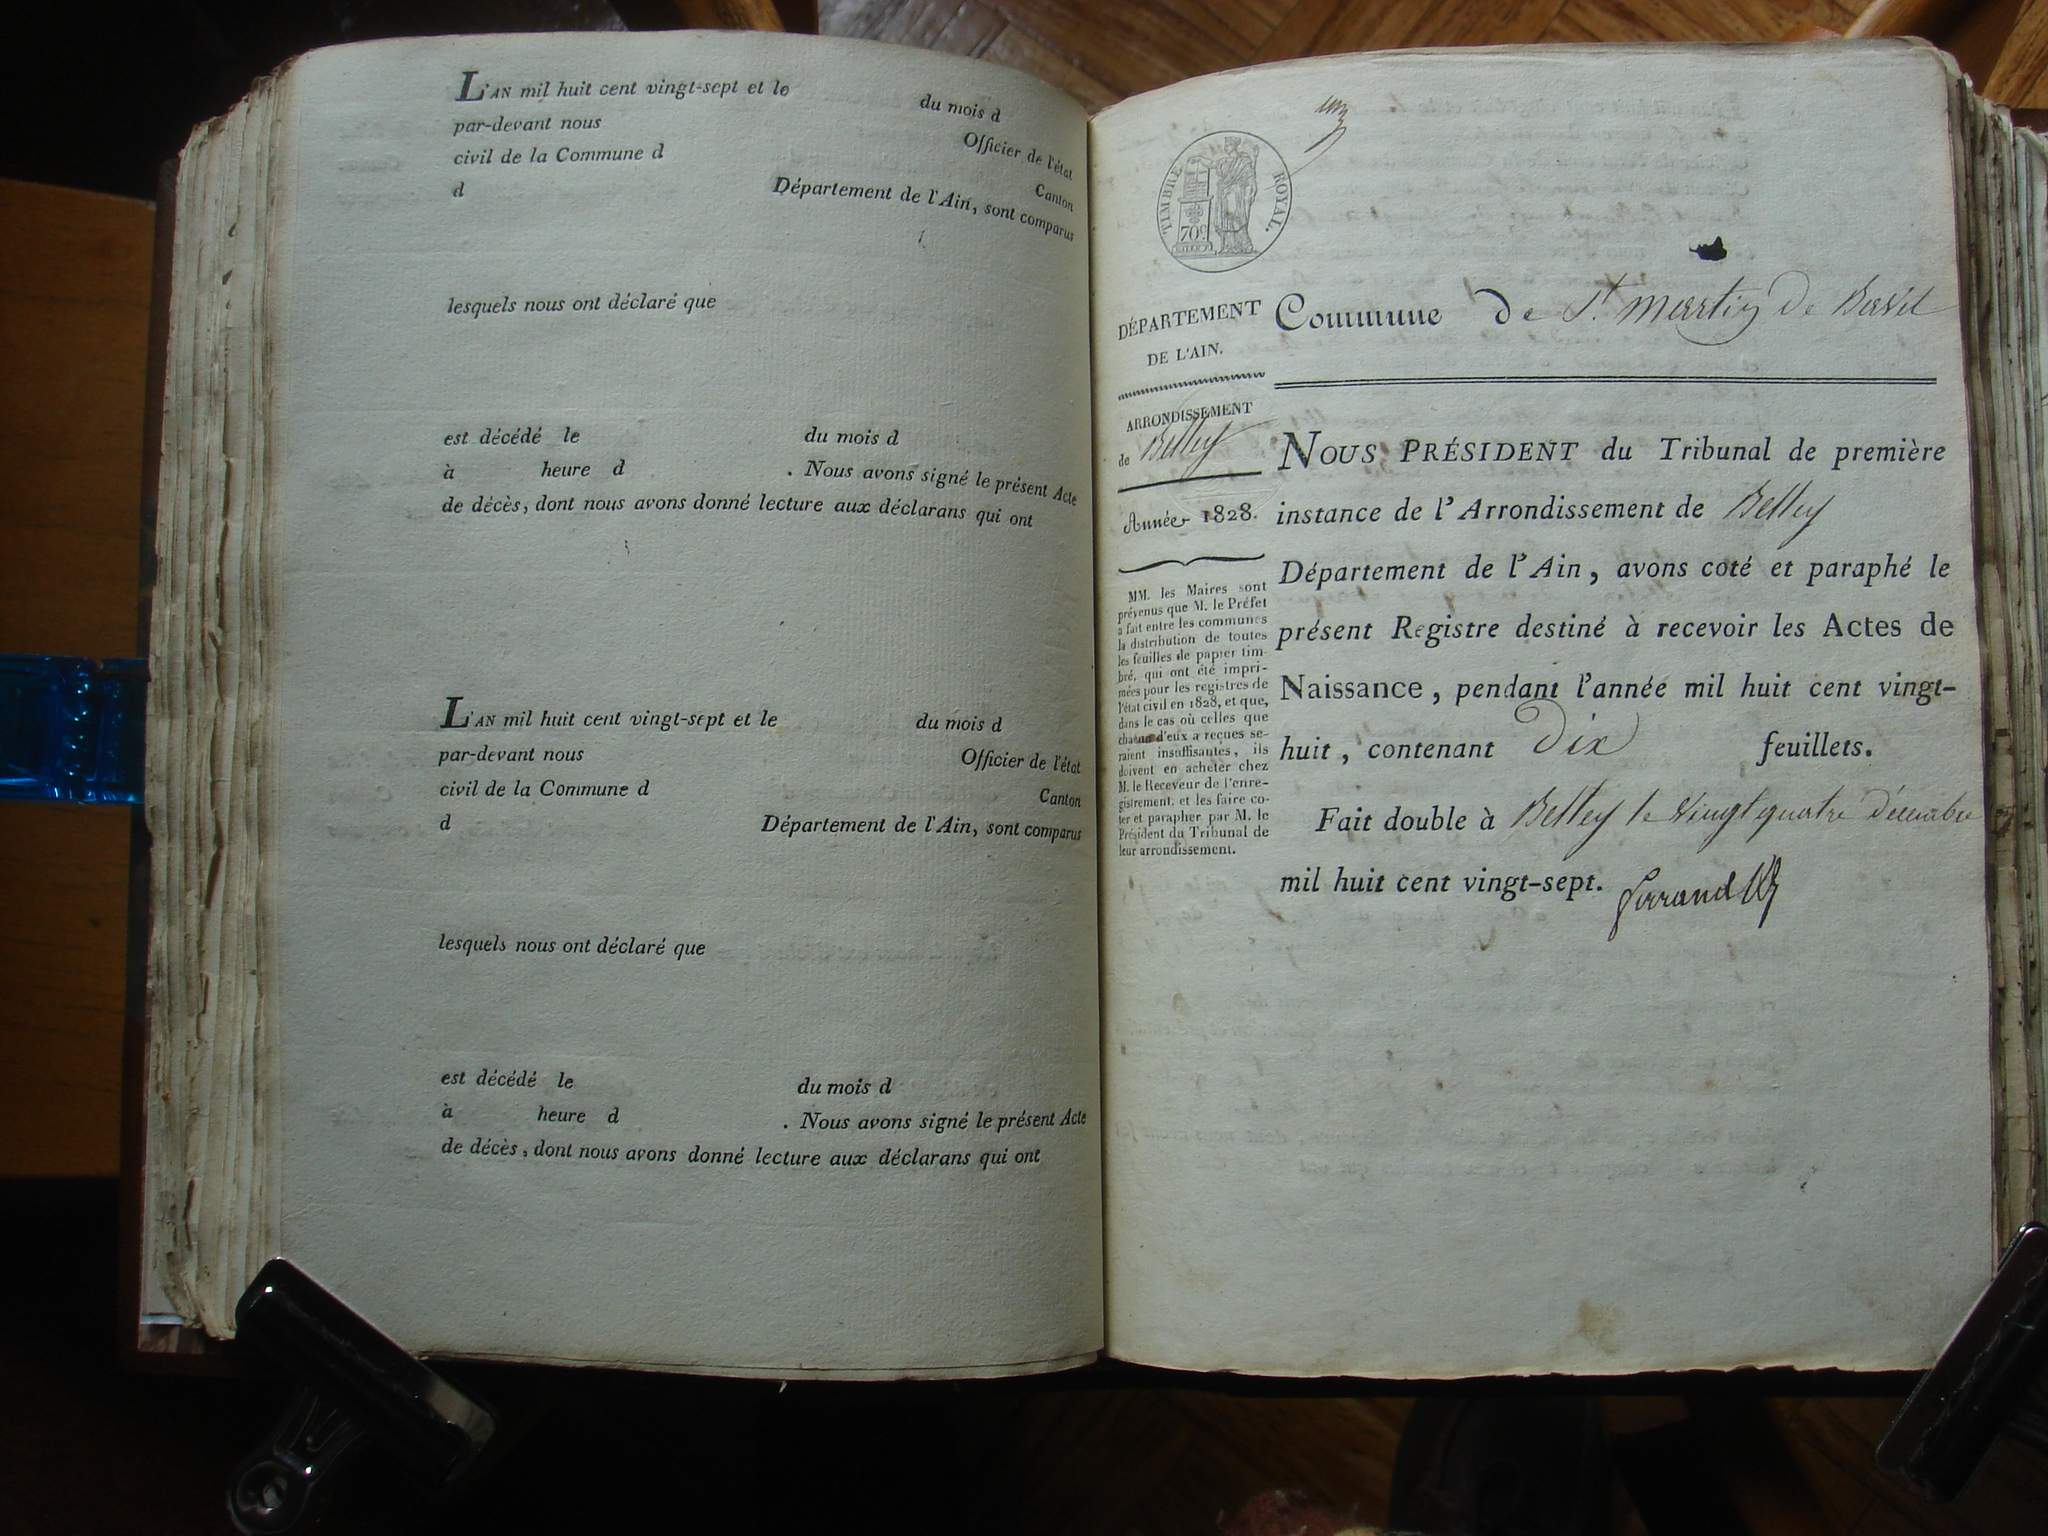 L'AN mil huit cent vingt-sept et le du mois d
par-devant nous Officier de l'état
civil de la Commune d Canton
d Département de l'Ain, sont comparus
lesquels nous ont déclaré que
est décédé le du mois d
à heure d . Nous avons signé le présent Acte
de décès, dont nous avons donné lecture aux déclarans qui ont
L'AN mil huit cent vingt-sept et le du mois d
par-devant nous Officier de l'état
civil de la Commune d Canton
d Département de l'Ain, sont comparus
lesquels nous ont déclaré que
est décédé le du mois d
à heure d . Nous avons signé le présent Acte
de décès, dont nous avons donné lecture aux déclarans qui ont
un
TIMBRE ROYAL.
70c
DÉPARTEMENT
DE L'AIN.
ARRONDISSEMENT
de Belley
Année 1828.
MM. les Maires sont
prévenus que M. le Préfet
a fait entre les communes
la distribution de toutes
les feuilles de papier tim-
bré, qui ont été impri-
mées pour les registres de
l'état civil en 1828, et que,
dans le cas où celles que
chacun d'eux a reçues se-
raient insuffisantes, ils
doivent en acheter chez
M. le Receveur de l'enre-
gistrement, et les faire co-
ter et parapher par M. le
Président du Tribunal de
leur arrondissement.
Commune De St. Martin de Bavel
NOUS PRÉSIDENT du Tribunal de première
instance de l'Arrondissement de Belley
Département de l'Ain, avons coté et paraphé le
présent Registre destiné à recevoir les Actes de
Naissance, pendant l'année mil huit cent vingt-
huit, contenant Dix feuillets.
Fait double à Belley le vingt quatre décembre
mil huit cent vingt-sept.